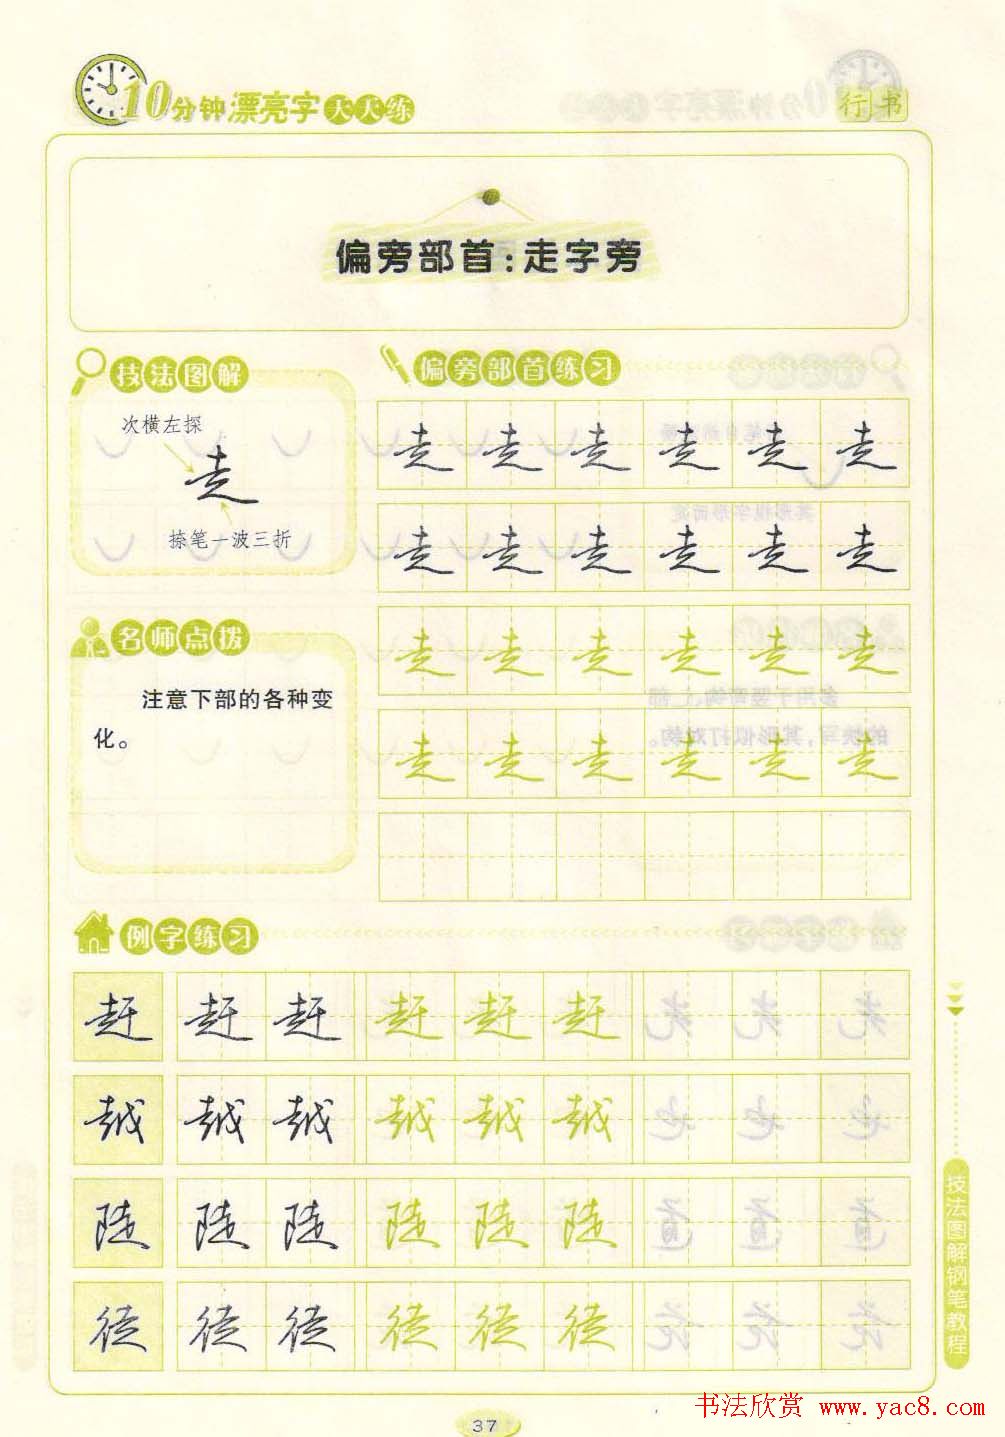 10分钟漂亮字天天练
行书
偏旁部首:走字旁
技法图解
次横左探
走
捺笔一波三折
偏旁部首练习
走 走 走 走 走 走
走 走 走 走 走 走
走 走 走 走 走 走
走 走 走 走 走 走
名师点拨
注意下部的各种变
化。
例字练习
赶 赶 赶 赶 赶 赶
越 越 越 越 越 越
陡 陡 陡 陡 陡 陡
徒 徒 徒 徒 徒 徒
技法图解钢笔教程
37
书法欣赏 www.yac8.com